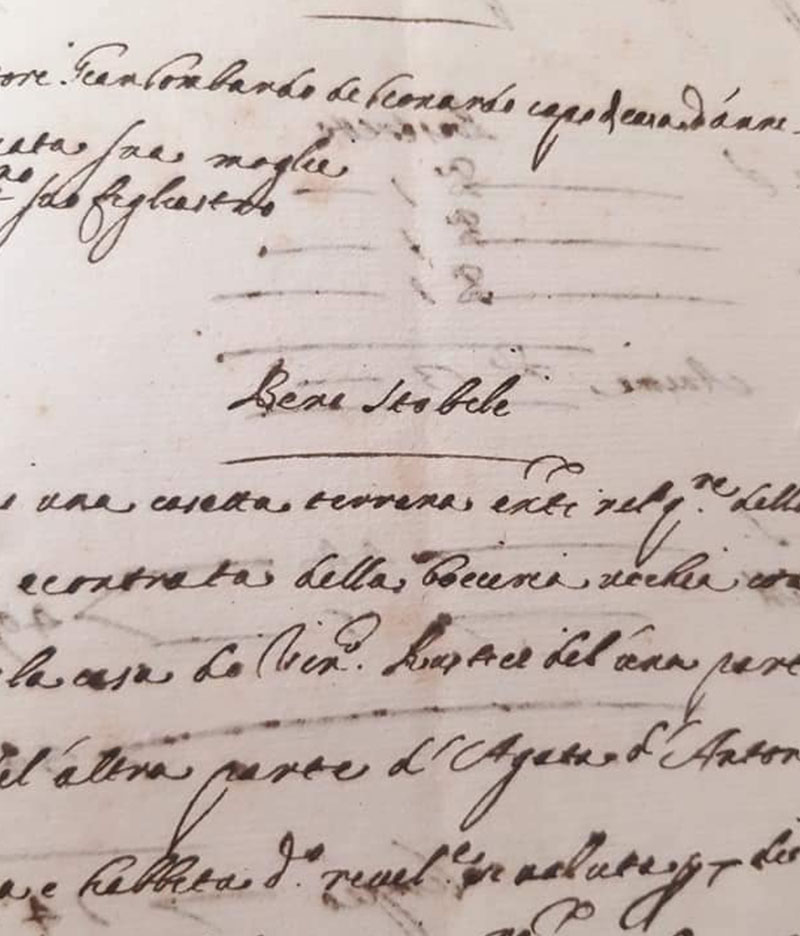 Gian Lombardo de Leonardo capo di casa d'anni
sua moglie
suo figliastro
Beni Stabili
una casetta terrana nel q.re della
e contrata della bocceria vecchia
la casa di Vin.o del una parte
el'altra parte d'Agata d'Anton
e habbita d.o revel.e